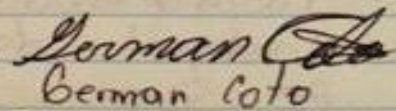 German Coto
German Coto